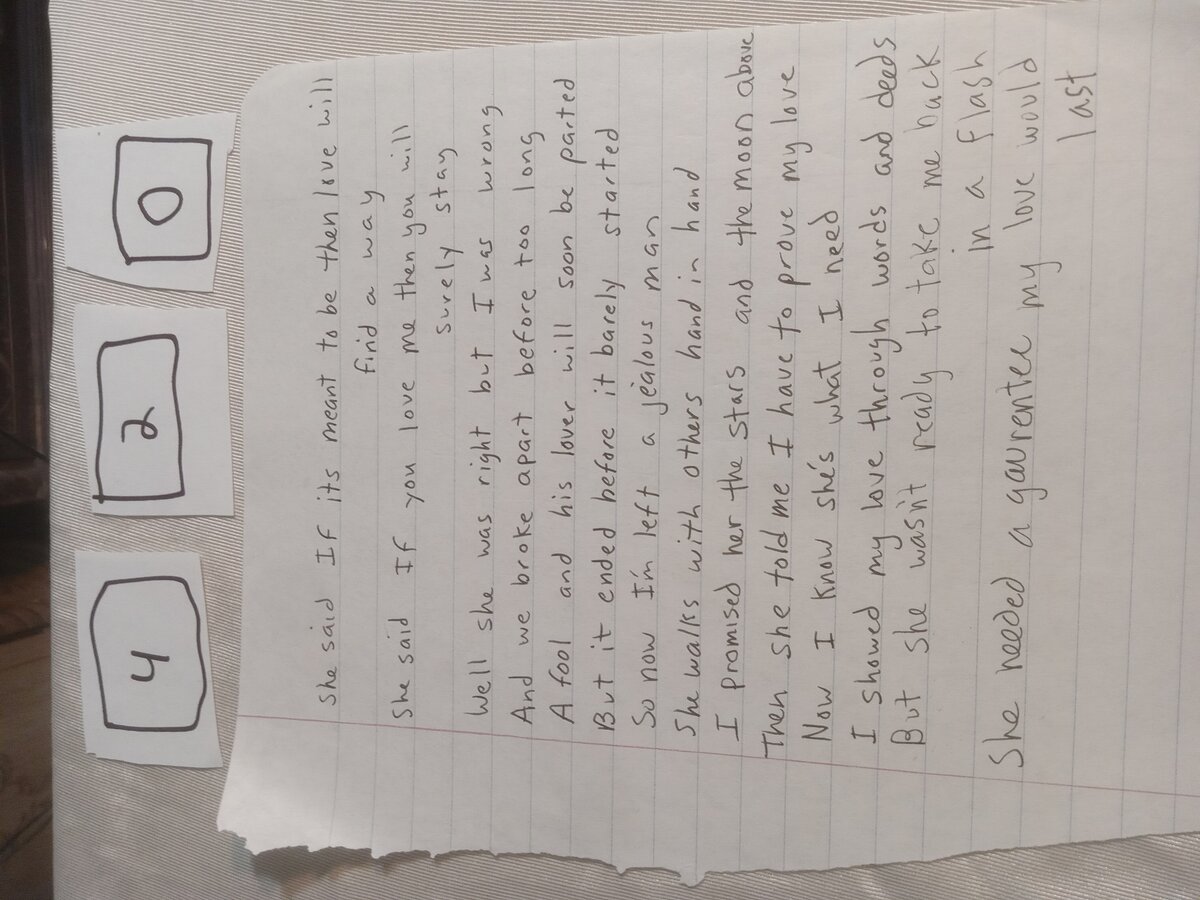 4 2 0
She said If its meant to be then love will
find a way
She said If you love me then you will
surely stay
Well she was right but I was wrong
And we broke apart before too long
A fool and his lover will soon be parted
But it ended before it barely started
So now I'm left a jealous man
She walks with others hand in hand
I promised her the stars and the moon above
Then she told me I have to prove my love
Now I know she's what I need
I showed my love through words and deeds
But she wasn't ready to take me back
in a flash
She needed a gaurentee my love would
last